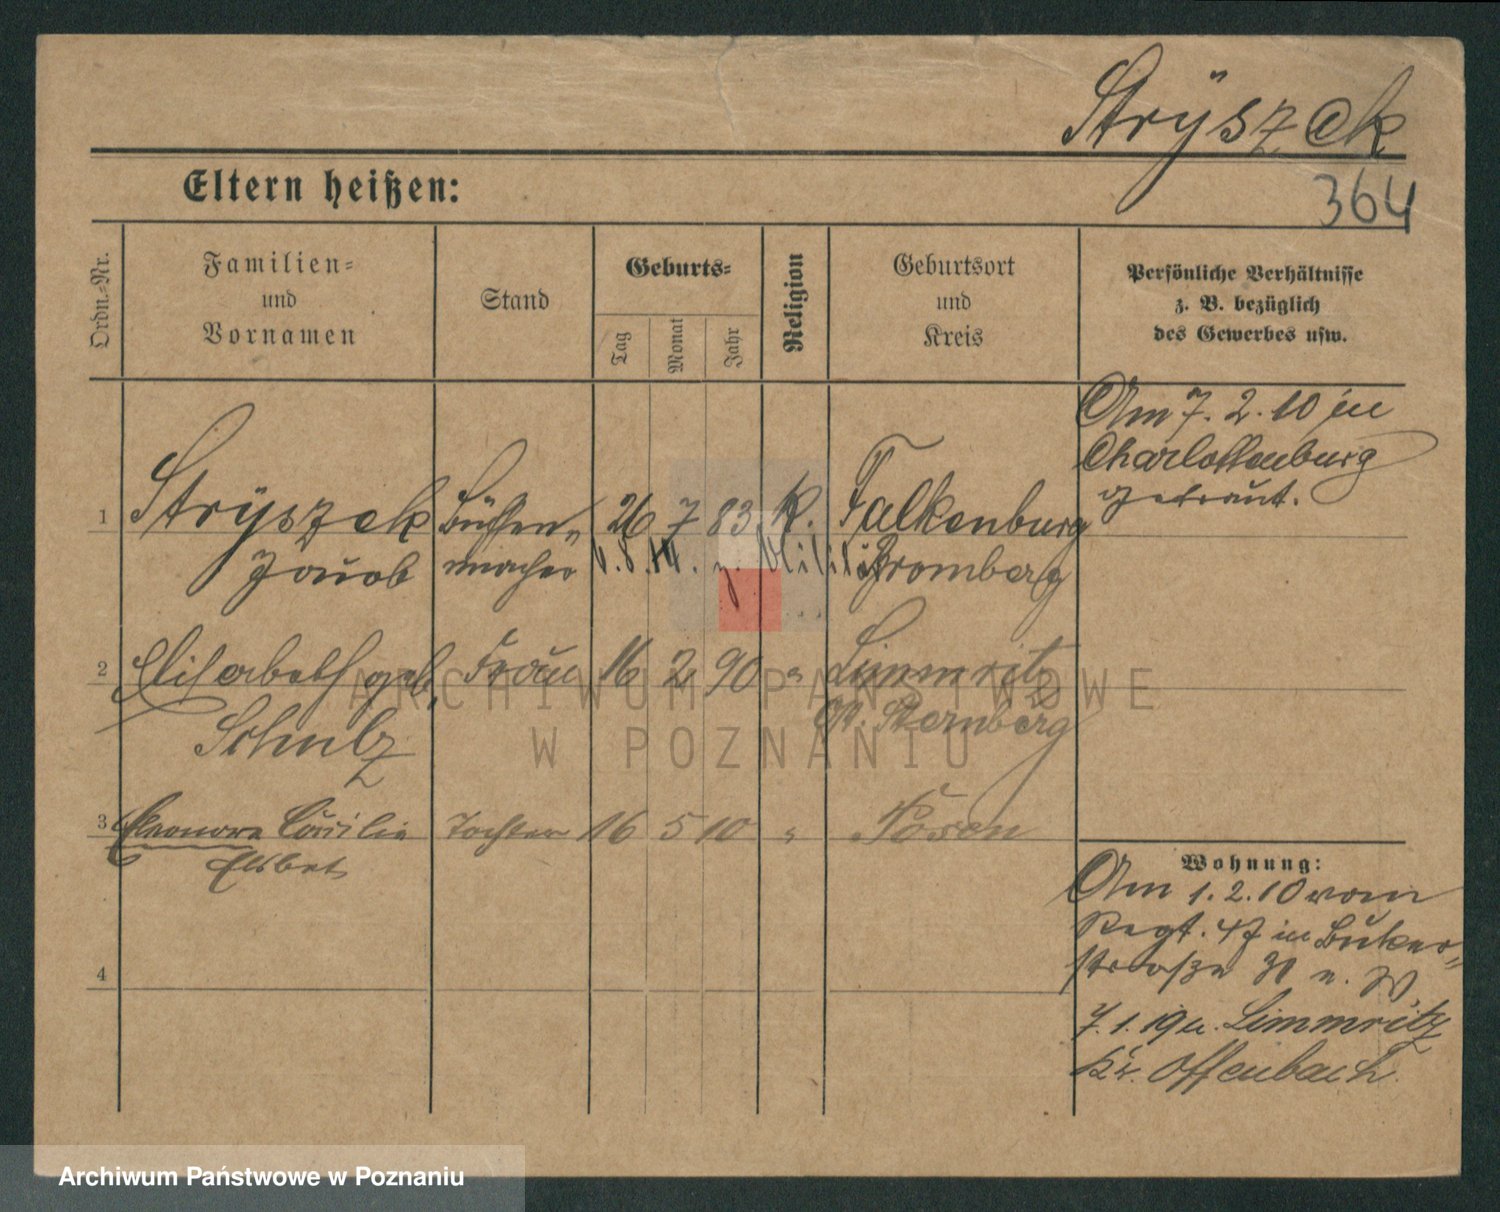 Strÿszek
Eltern heißen:
364
Ordn.-Nr.
Familien-
und
Vornamen
Stand
Geburts-
Tag
Monat
Jahr
Religion
Geburtsort
und
Kreis
Persönliche Verhältnisse
z. B. bezüglich
des Gewerbes usw.
Am 7. 2. 10 in
Charlottenburg
getraut.
1 Strÿszek Büchsen- 26 7 83 K. Falkenburg
Jacob macher v. 8. 14. z. Militär Bromberg
2 Elisabeth geb. Frau 16 2 90 " Limmritz
Schulz St. Sternberg
3 Eleonore Cäcilie Tochter 16 5 10 " Posen
Elsbet
Wohnung:
Am 1. 2. 10 vom
Regt. 47 in Buker-
straße 31 n. W
4
7. 1. 19 n. Limmritz
Kr. Offenbach.
ARCHIWUM PAŃSTWOWE
W POZNANIU
Archiwum Państwowe w Poznaniu